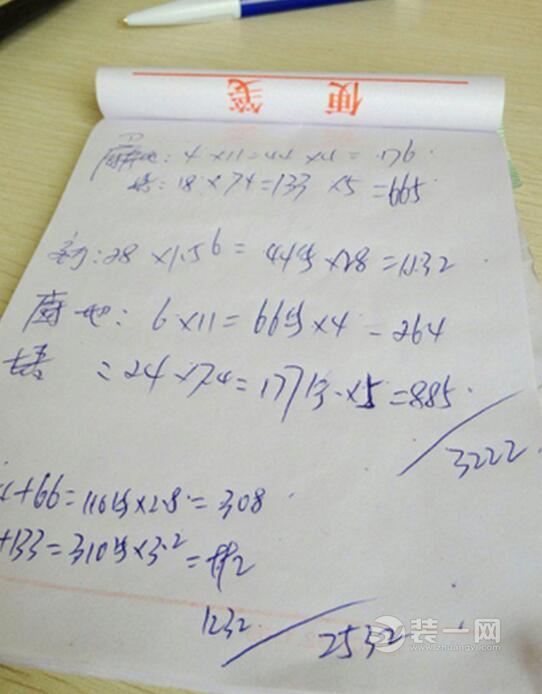 便笺
地: 4×11=44×4=176.
墙: 18×7.4=133×5=665
28×1.56=44块×28=1232
厨地: 6×11=66块×4=264
墙=24×7.4=177块×5=885.
3222
+66=110块×2.8=308
+133=310块×3.2=
1232
2532
装一网
www.zhuangyi.com